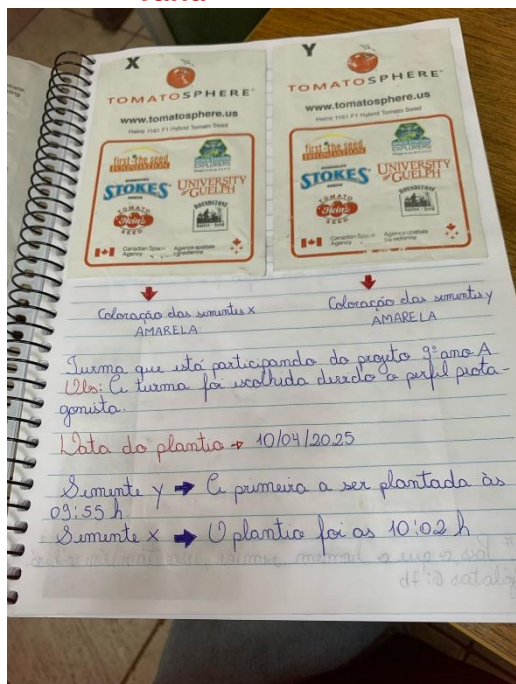 X
TOMATOSPHERE
www.tomatosphere.us
Heinz 1161 F1 Hybrid Tomato Seed
first the seed
FOUNDATION
STOKES
SEEDS
UNIVERSITY
OF GUELPH
TOMATO
Heinz
SEED
Canadian Space Agence spatiale
Agency canadienne
Y
TOMATOSPHERE
www.tomatosphere.us
Heinz 1161 F1 Hybrid Tomato Seed
first the seed
FOUNDATION
STOKES
SEEDS
UNIVERSITY
OF GUELPH
TOMATO
Heinz
SEED
Canadian Space Agence spatiale
Agency canadienne
Coloração das sementes x
AMARELA
Coloração das sementes y
AMARELA
Turma que está participando do projeto 9º ano A
Obs: A turma foi escolhida devido o perfil prota-
gonista.
Data do plantio → 10/04/2025
Semente y → A primeira a ser plantada às
09:55 h.
Semente x → O plantio foi as 10:02 h